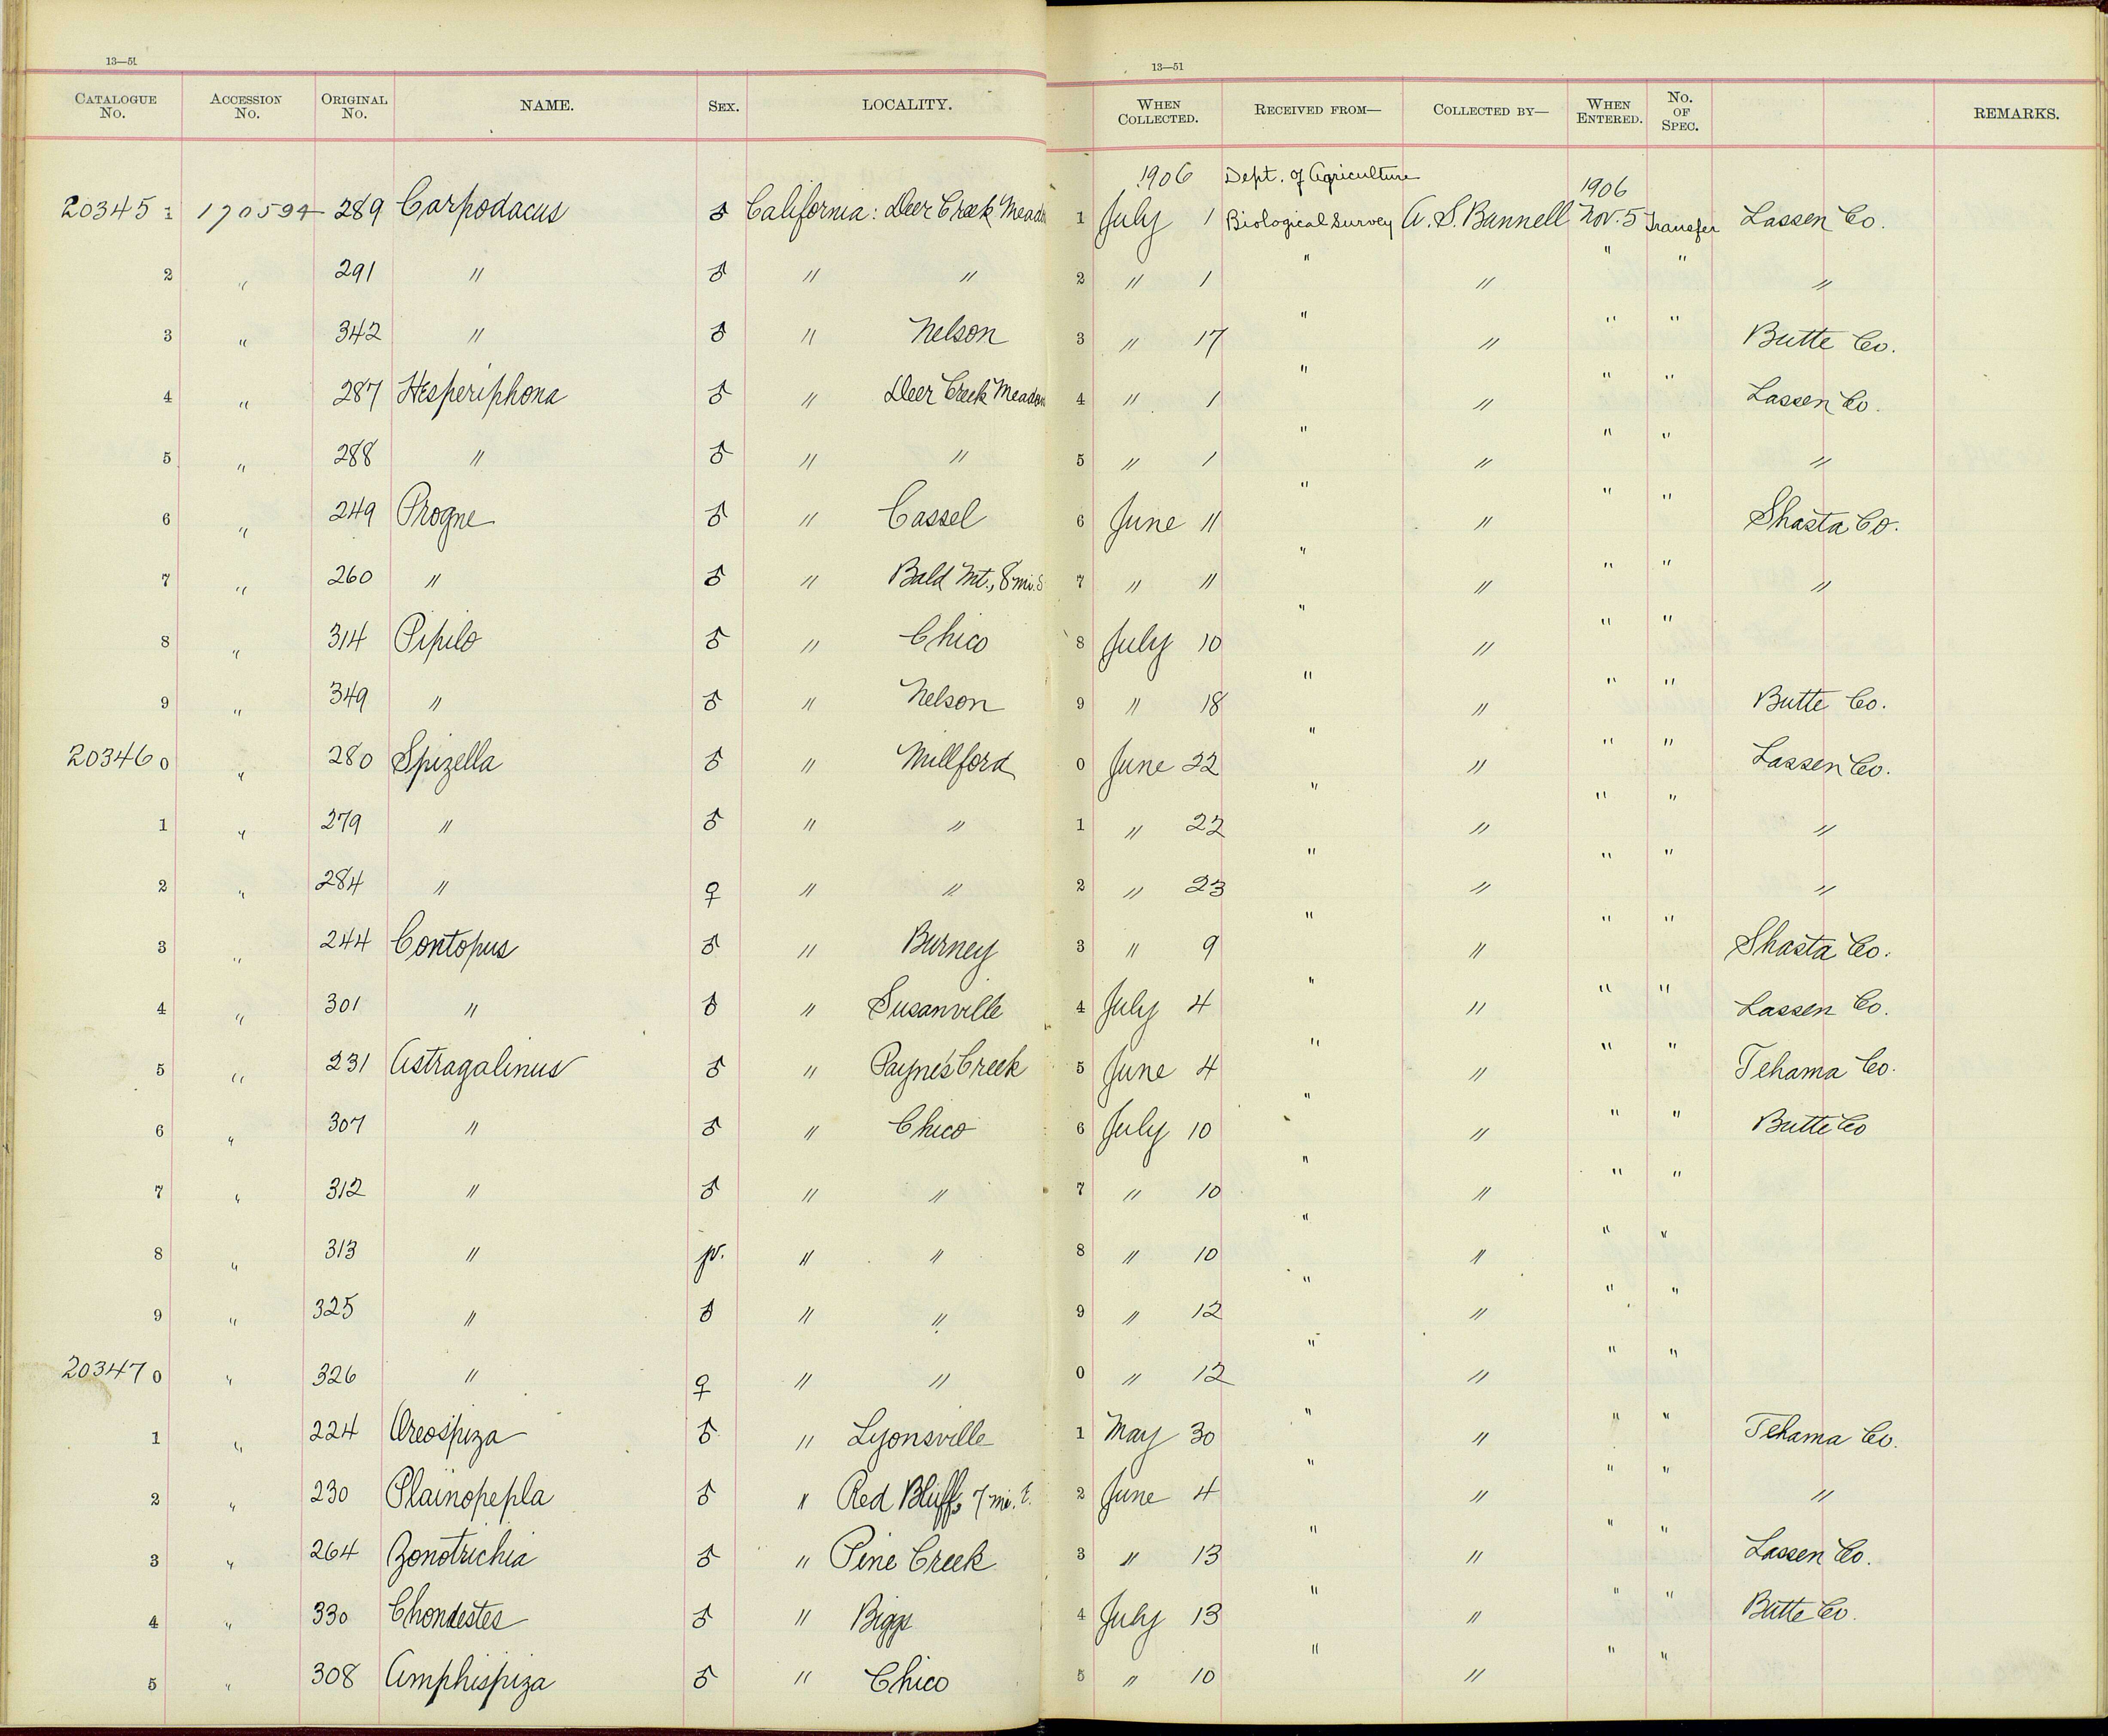 13—51
13—51
CATALOGUE No. ACCESSION No. ORIGINAL No. NAME. SEX. LOCALITY. WHEN COLLECTED. RECEIVED FROM— COLLECTED BY— WHEN ENTERED. No. OF SPEC. REMARKS.
1906 Dept. of Agriculture 1906
20345 1 170594 289 Carpodacus ♂ California: Deer Creek Meado 1 July 1 Biological Survey Nov. 5 Transfer Lassen Co.
2 " 291 " ♂ " " 2 " 1 " " " " "
3 " 342 " ♂ " Nelson 3 " 17 " " " " Butte Co.
4 " 287 Hesperiphona ♂ " Deer Creek Meadow 4 " 1 " " " " Lassen Co.
5 " 288 " ♂ " " 5 " 1 " " " " "
6 " 249 Progne ♂ " Cassel 6 June 11 " " " " Shasta Co.
7 " 260 " ♂ " Bald Mt., 8 mi. S 7 " 11 " " " " "
8 " 314 Pipilo ♂ " Chico 8 July 10 " " " "
9 " 349 " ♂ " Nelson 9 " 18 " " " " Butte Co.
20346 0 " 280 Spizella ♂ " Millford 0 June 22 " " " " Lassen Co.
1 " 279 " ♂ " " 1 " 22 " " " " "
2 " 284 " ♀ " " 2 " 23 " " " " "
3 " 244 Contopus ♂ " Burney 3 " 9 " " " " Shasta Co.
4 " 301 " ♂ " Susanville 4 July 4 " " " " Lassen Co.
5 " 231 Astragalinus ♂ " Payne's Creek 5 June 4 " " " " Tehama Co.
6 " 307 " ♂ " Chico 6 July 10 " " " " Butte Co
7 " 312 " ♂ " " 7 " 10 " " " "
8 " 313 " " " 8 " 10 " " " "
9 " 325 " ♂ " " 9 " 12 " " " "
20347 0 " 326 " ♀ " " 0 " 12 " " " "
1 " 224 Oreospiza ♂ " Lyonsville 1 May 30 " " " " Tehama Co.
2 " 230 Phainopepla ♂ " Red Bluff, 7 mi. E. 2 June 4 " " " " "
3 " 264 Zonotrichia ♂ " Pine Creek 3 " 13 " " " " Lassen Co.
4 " 330 Chondestes ♂ " Biggs 4 July 13 " " " " Butte Co.
5 " 308 Amphispiza ♂ " Chico 5 " 10 " " " "